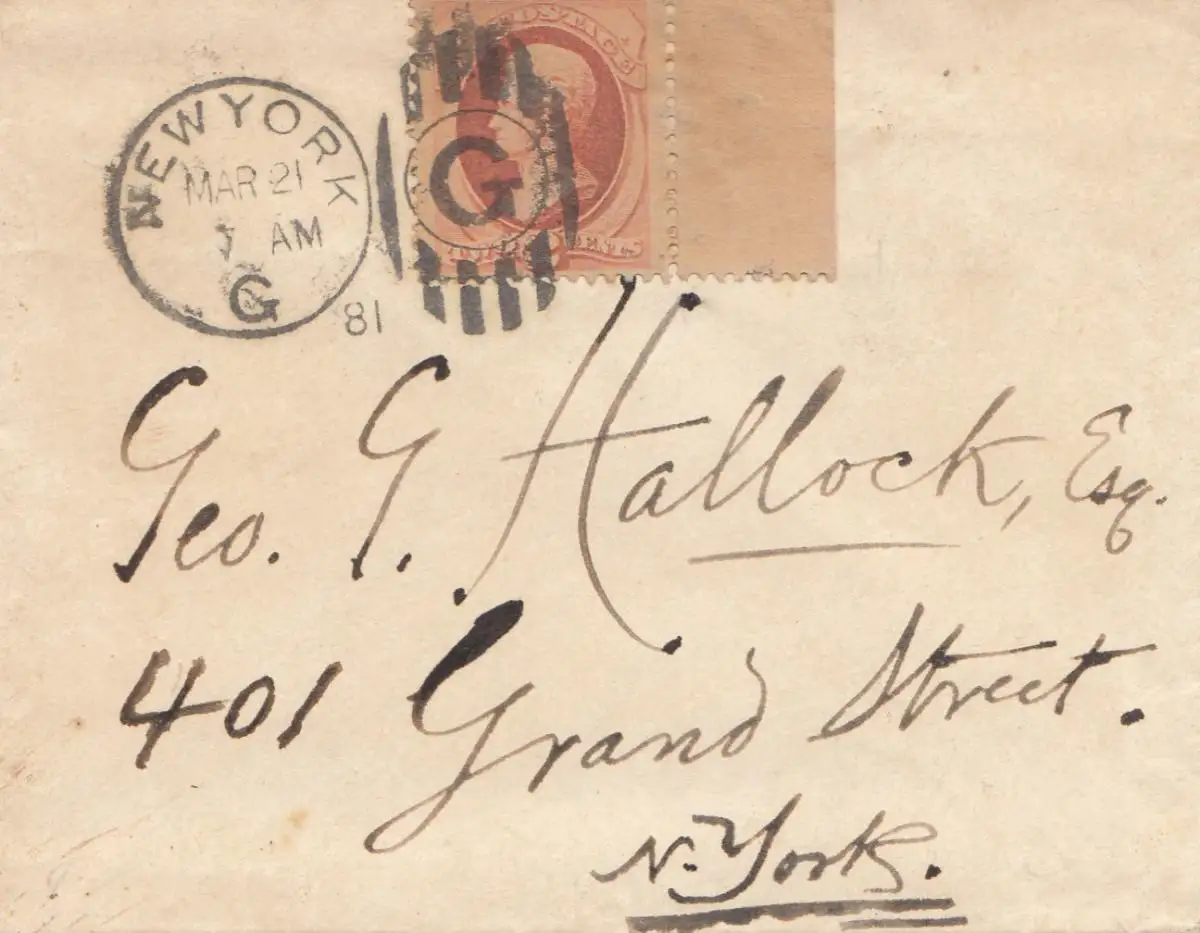 NEW YORK
MAR 21
7 AM
G
81
G
Geo. G. Hallock, Esq.
401 Grand Street.
N. York.